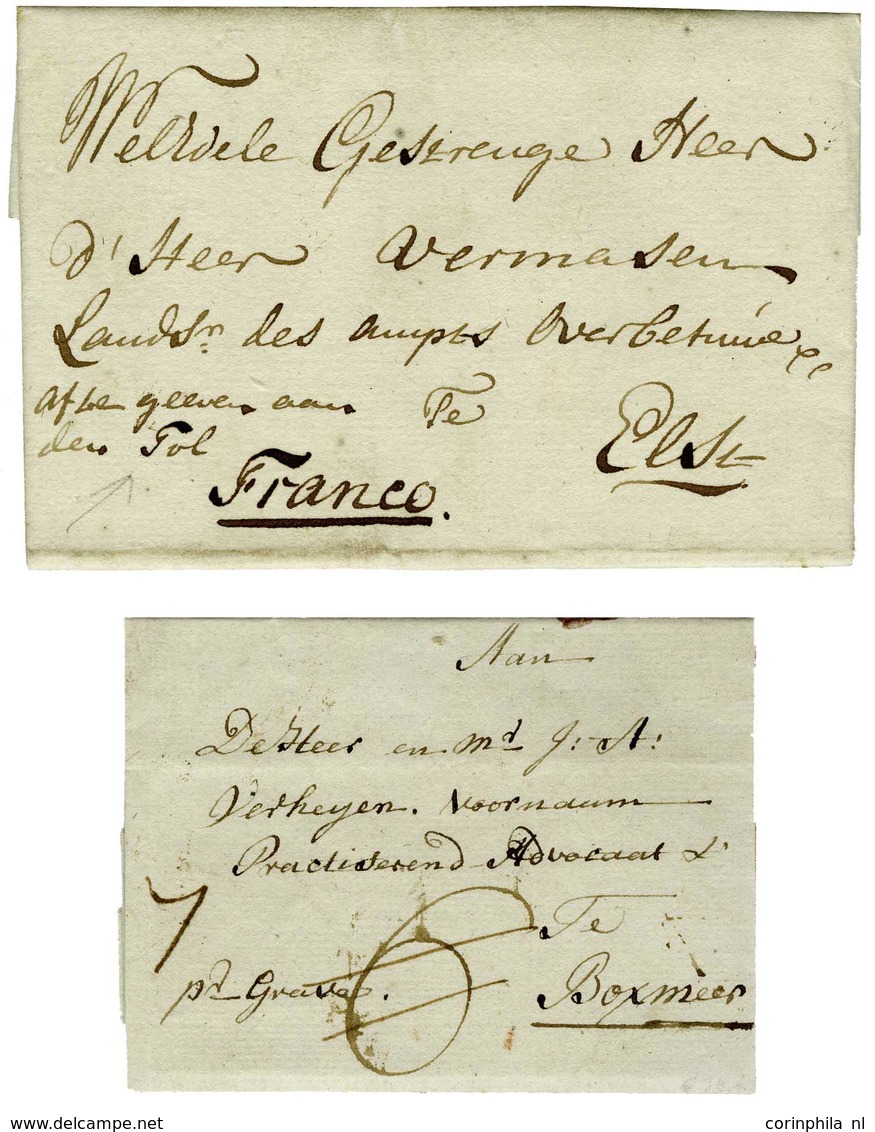 WelEdele Gestrenge Heer
d'Heer Vermasen
Landsn. des ampts Overbetuwe
af te geeven aan Te
den Tol Elst
Franco.
Aan
De Heer en Mr. J: A:
Verheyen. Voornaam
Practiserend Advocaat &
7
Te
pr Grave. 6
Boxmeer
corinphila nl